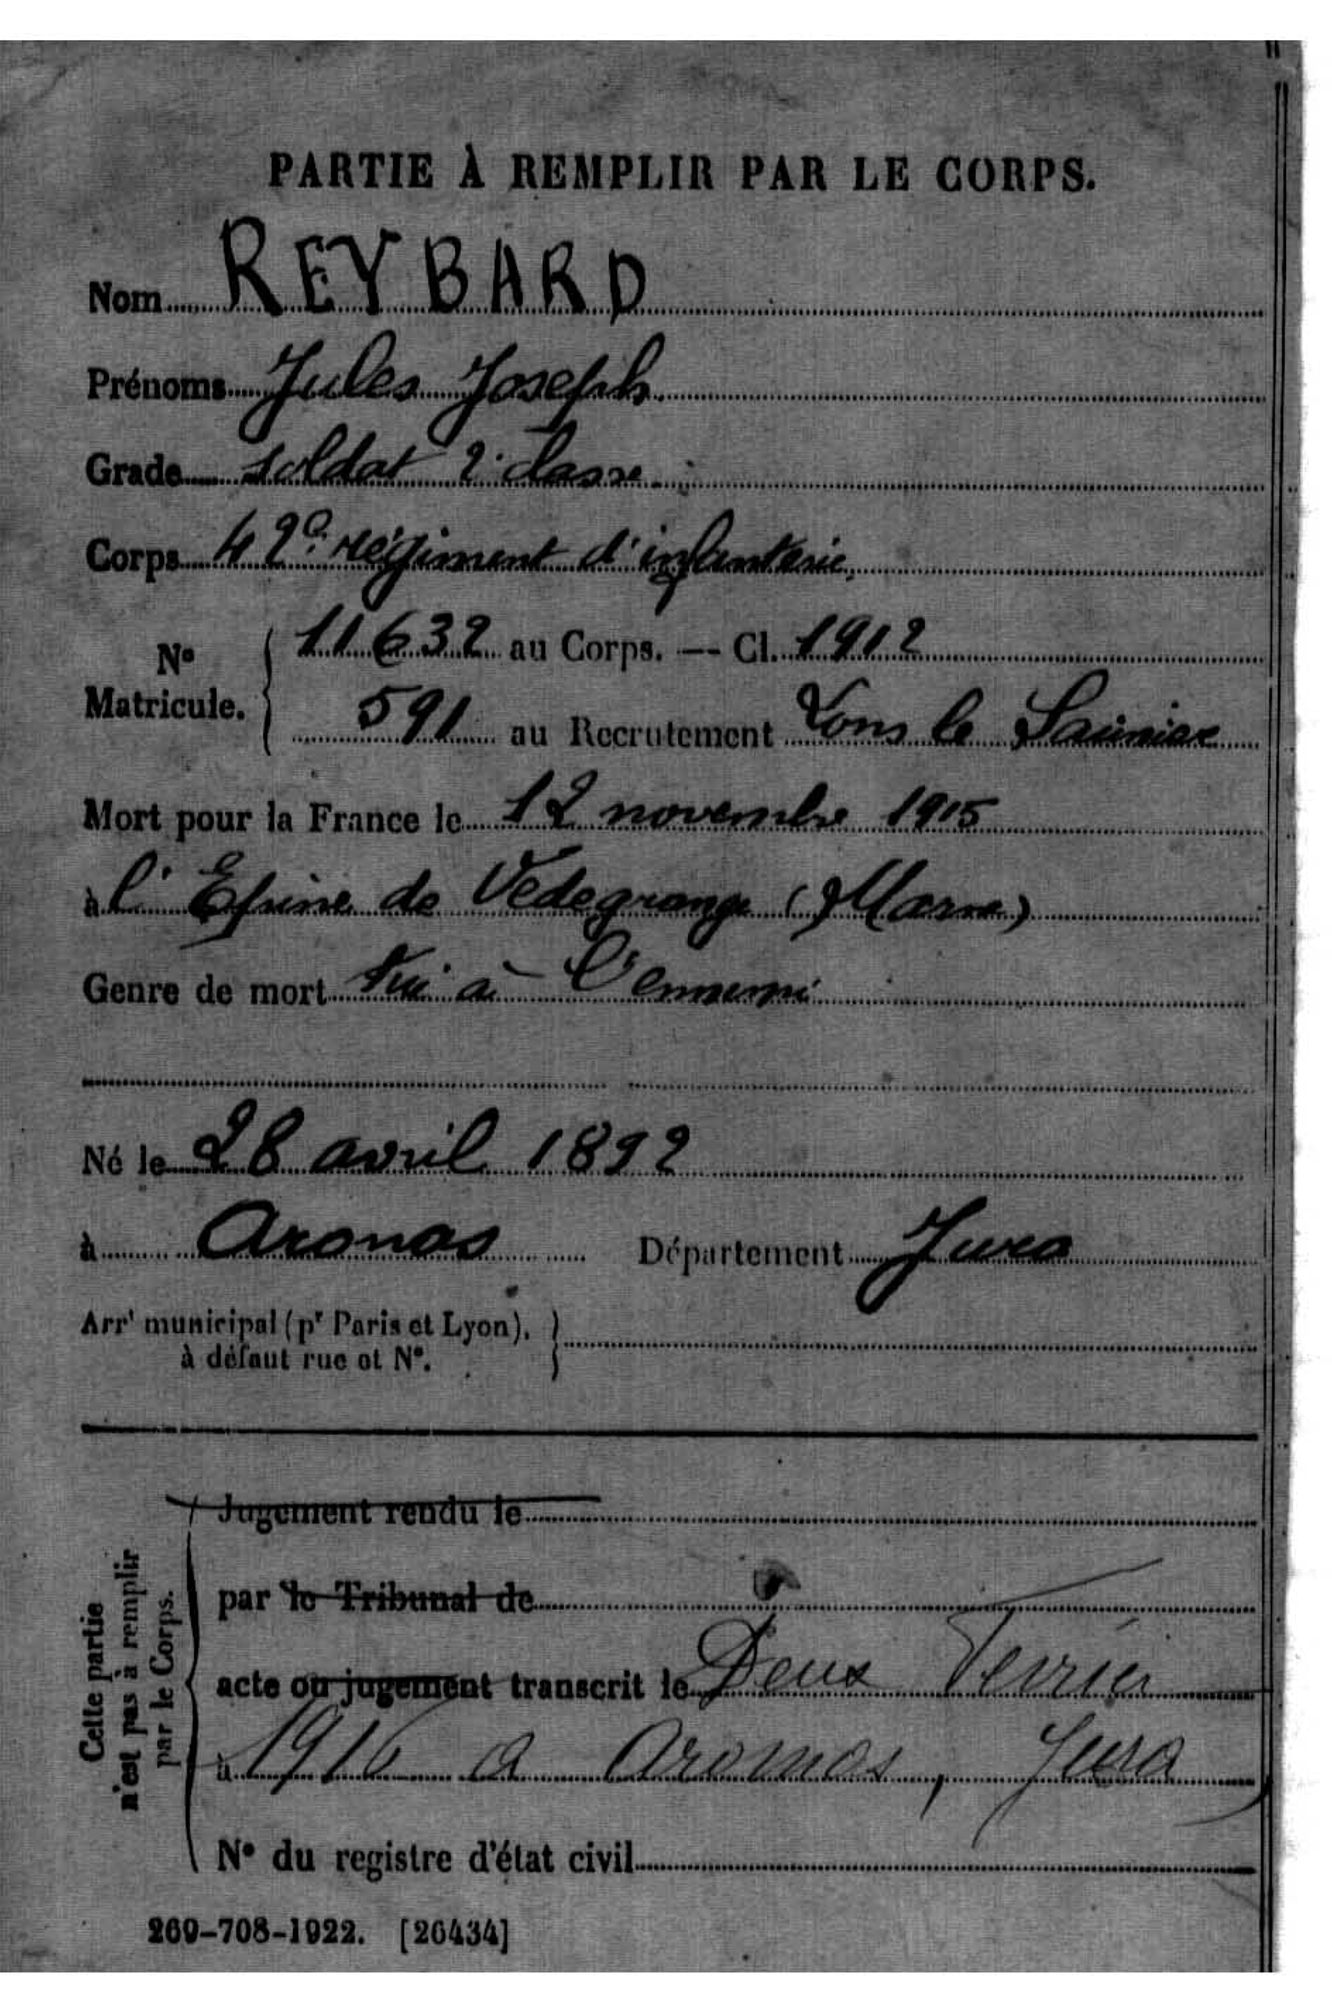 PARTIE À REMPLIR PAR LE CORPS.
Nom REYBARD
Prénoms Jules Joseph
Grade soldat 2e classe
Corps 42e régiment d'infanterie
No Matricule. 11632 au Corps. — Cl. 1912
591 au Recrutement Lons le Saunier
Mort pour la France le 12 novembre 1915
à l'Epine de Vedegrange (Marne)
Genre de mort tué à l'ennemi
Né le 28 avril 1892
à Aromas Département Jura
Arrt municipal (pr Paris et Lyon),
à défaut rue et No.
Cette partie
n'est pas à remplir
par le Corps.
Jugement rendu le
par le Tribunal de
acte ou jugement transcrit le Deux Février
à 1916 a Aromas, Jura
No du registre d'état civil
269-708-1922. [26434]